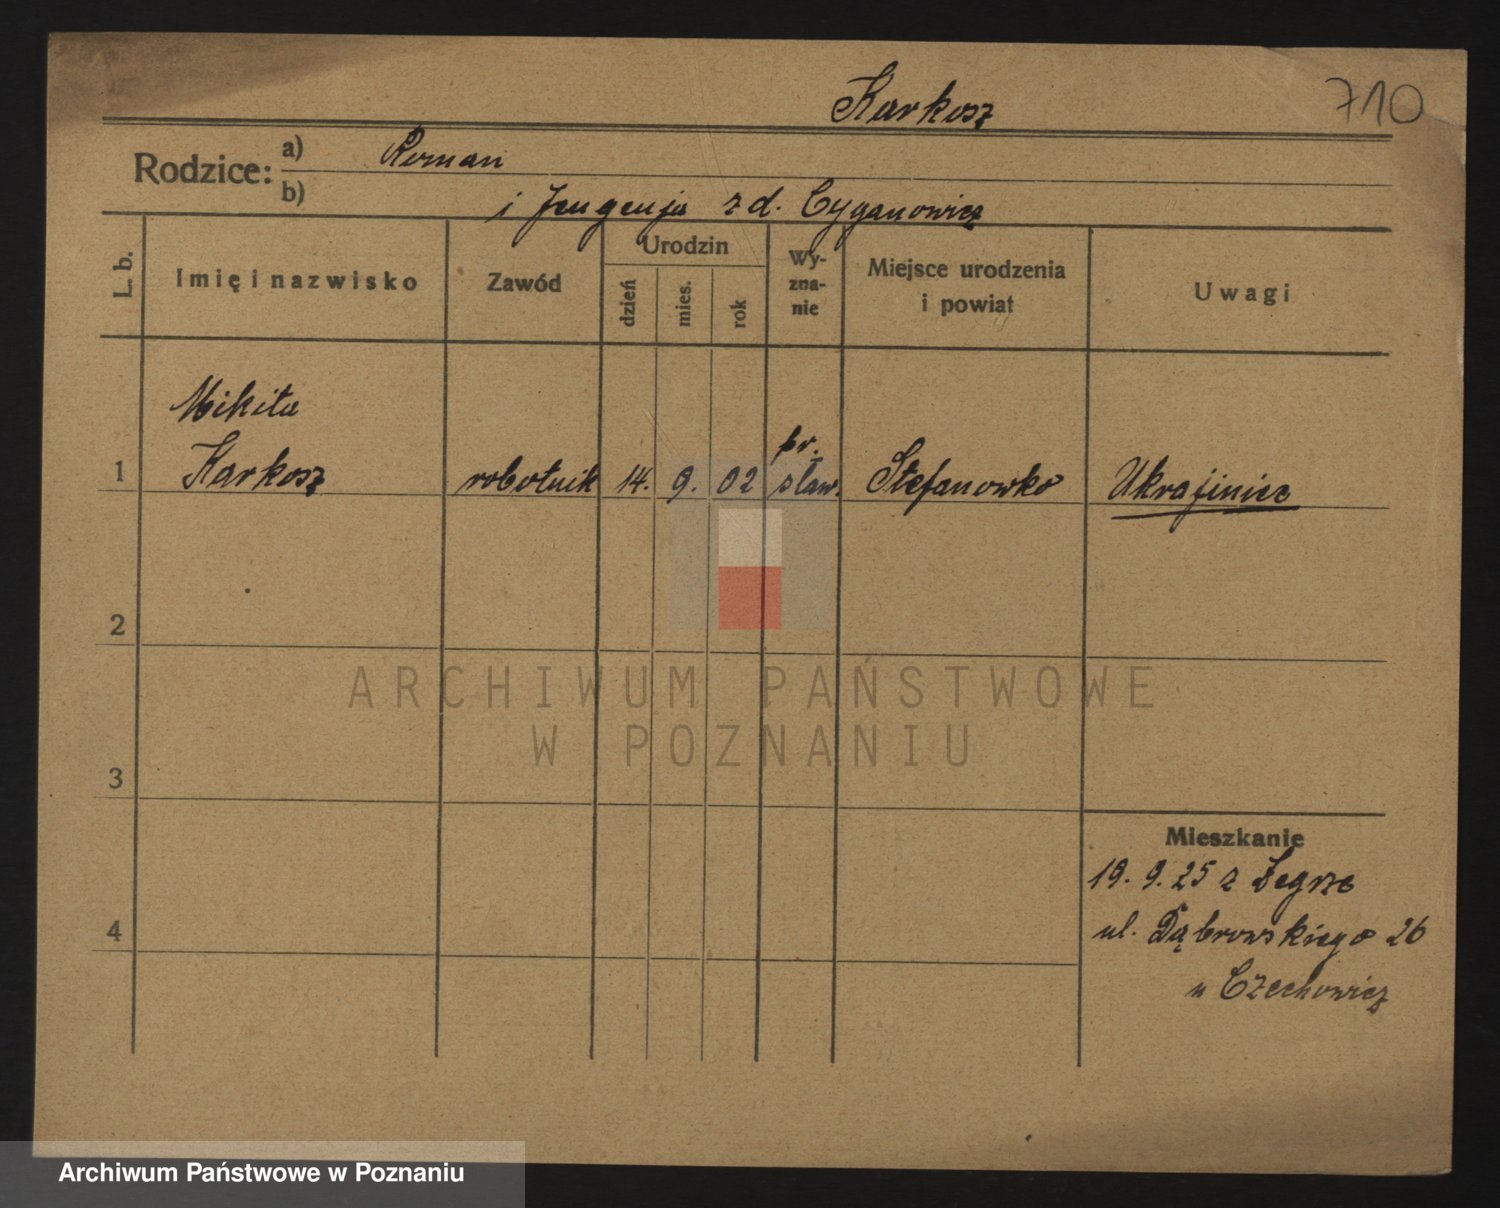 Karkosz
710
Rodzice:
a) Roman
b) i Jeugenja z d. Cyganowicz
L. b.
Imię i nazwisko
Zawód
Urodzin
dzień
mies.
rok
Wy-
zna-
nie
Miejsce urodzenia
i powiat
Uwagi
Mikita
1 Karkosz robotnik 14. 9. 02 pr. sław. Stefanowko Ukrajiniec
2
3
4
Mieszkanie
19. 9. 25 z Żegrze
ul. Dąbrowskiego 26
u Czechowicz
ARCHIWUM PAŃSTWOWE
W POZNANIU
Archiwum Państwowe w Poznaniu